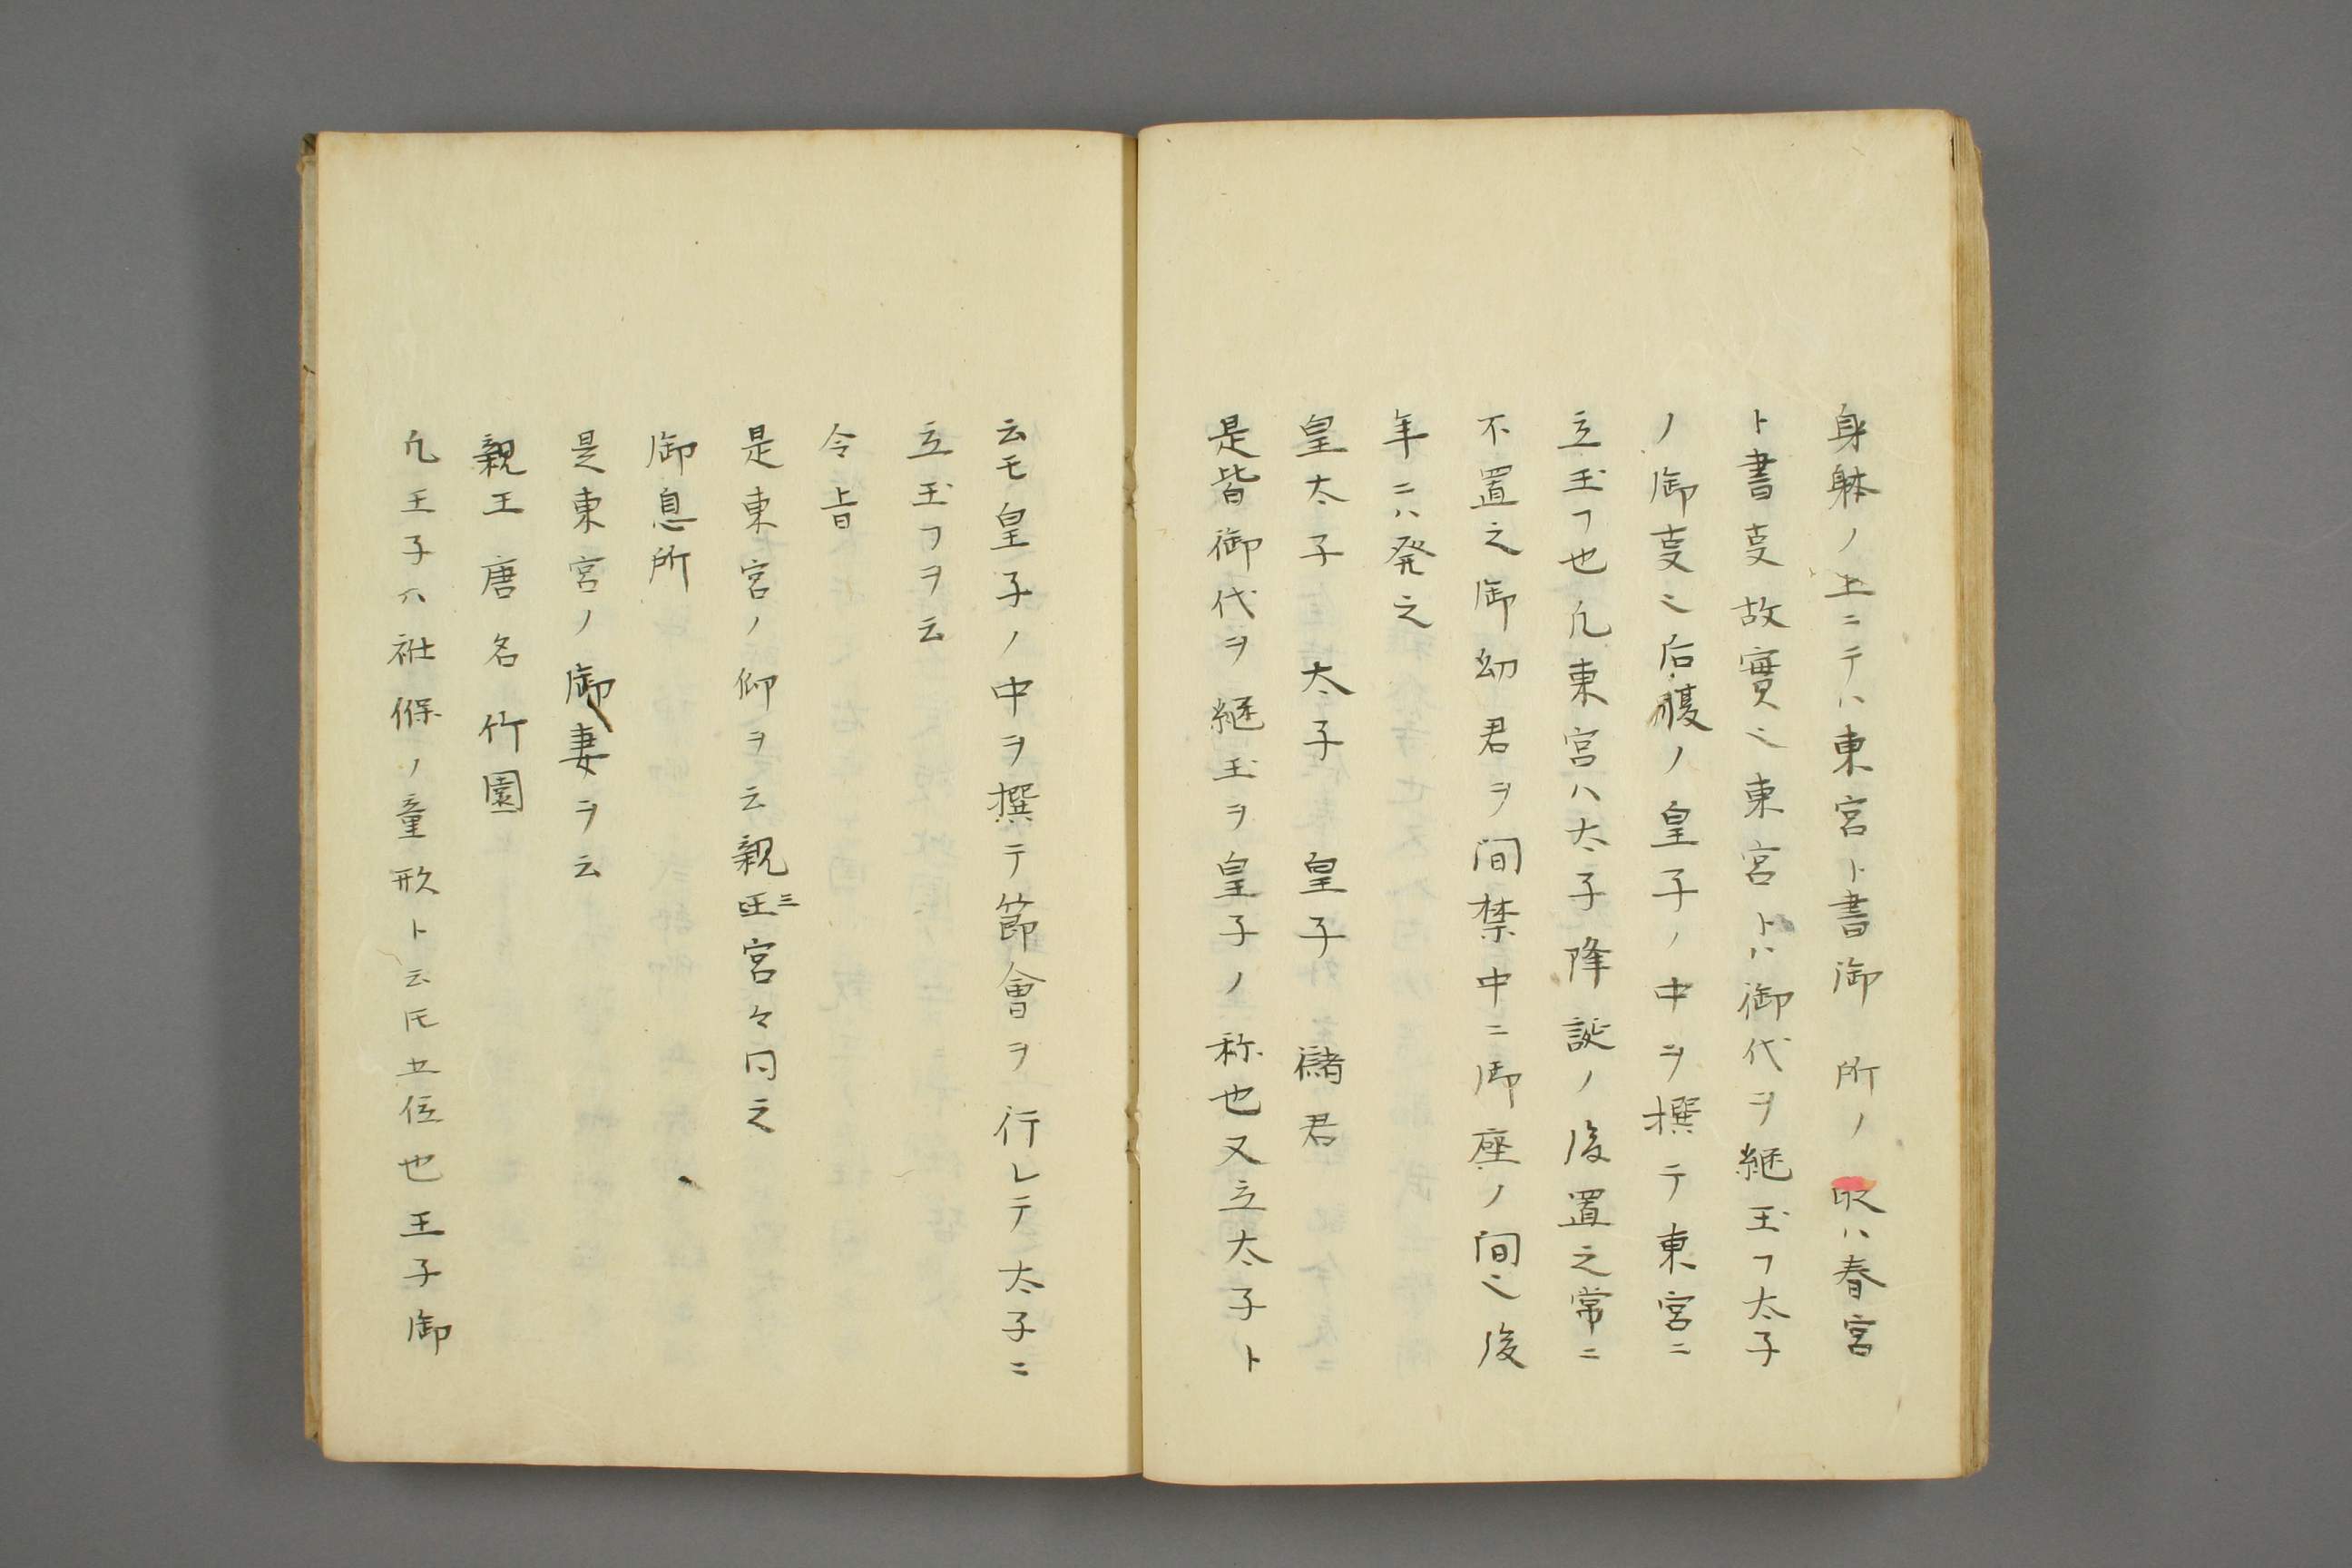 身躰ノ上ニテハ東宮ト書御所ノ㕝ハ春宮
ト書叓故實也東宮トハ御代ヲ継玉フ太子
ノ御叓也后腹ノ皇子ノ中ヲ撰テ東宮ニ
立玉フ也凡東宮ハ太子降誕ノ後置之常ニ
不置之御幼君ヲ間禁中ニ御座ノ間也後
年ニハ発之
皇太子　太子　皇子　儲君
是皆御代ヲ継玉ヲ皇子ノ称也又立太子ト
云モ皇子ノ中ヲ撰テ節會ヲ行レテ太子ニ
立玉フヲ云
令旨
是東宮ノ仰ヲ云親王三宮々同之
御息所
是東宮ノ御妻ヲ云
親王唐名竹園
凡王子ハ襁褓ノ童形ト云氏五位也王子御